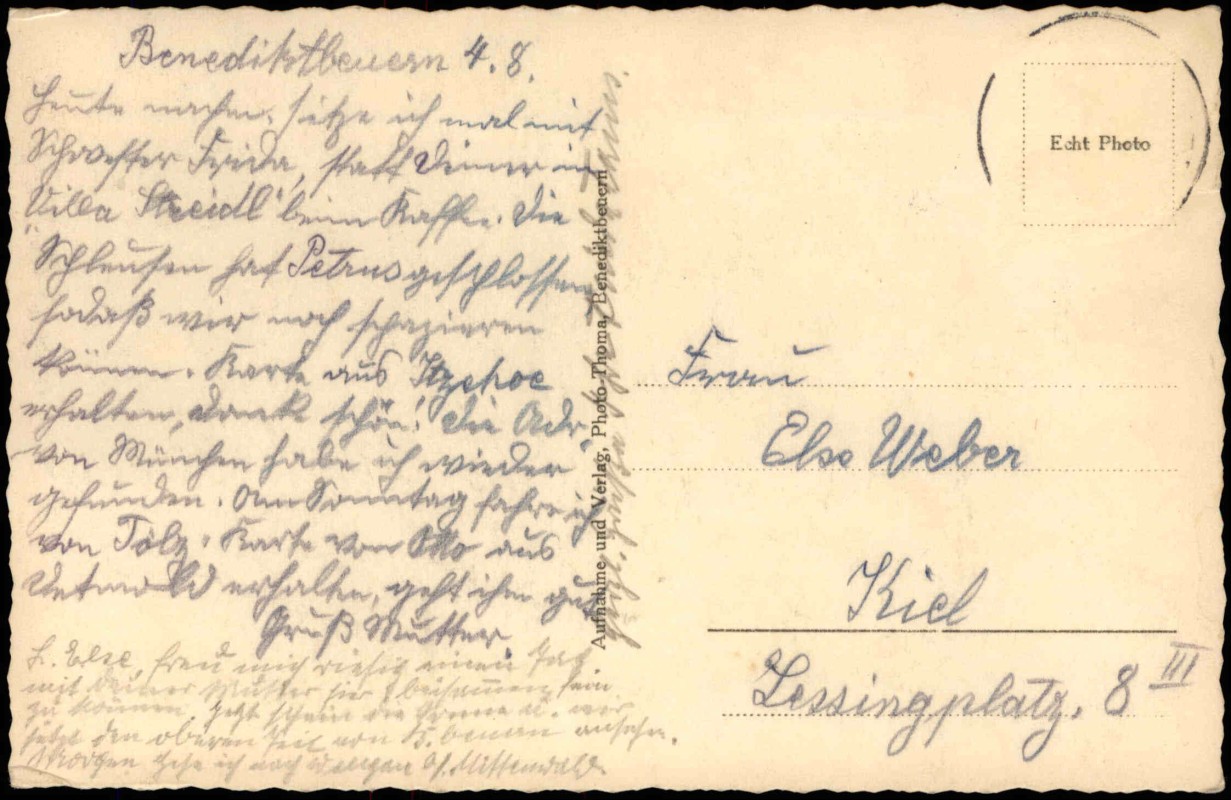 Benediktbeuern 4. 8.
Heute nachm. sitze ich mal mit
Schwester Frida, statt Deiner in
"Villa Streidl" beim Kaffee. Die
Schleusen hat Petrus geschlossen
sodaß wir noch spazieren
können. Karte aus Itzehoe
erhalten, dank schön! Die Adr.
von München habe ich wieder
gefunden. Am Sonntag fahre ich
von Tölz. Karte von Otto aus
Detmold erhalten, geht ihm gut
Gruß Mutter.
L. Else, freu mich riesig einen Tag
mit Deiner Mutter hier beisammen sein
zu können. Jetzt scheint die Sonne u. wir
den oberen Teil von B. beuern ansehn.
Morgen gehe ich nach b/. Mittenwald.
Aufnahme und Verlag, Photo-Thoma, Benediktbeuern
Echt Photo
Frau
Else Weber
Kiel
Lessingplatz. 8 III